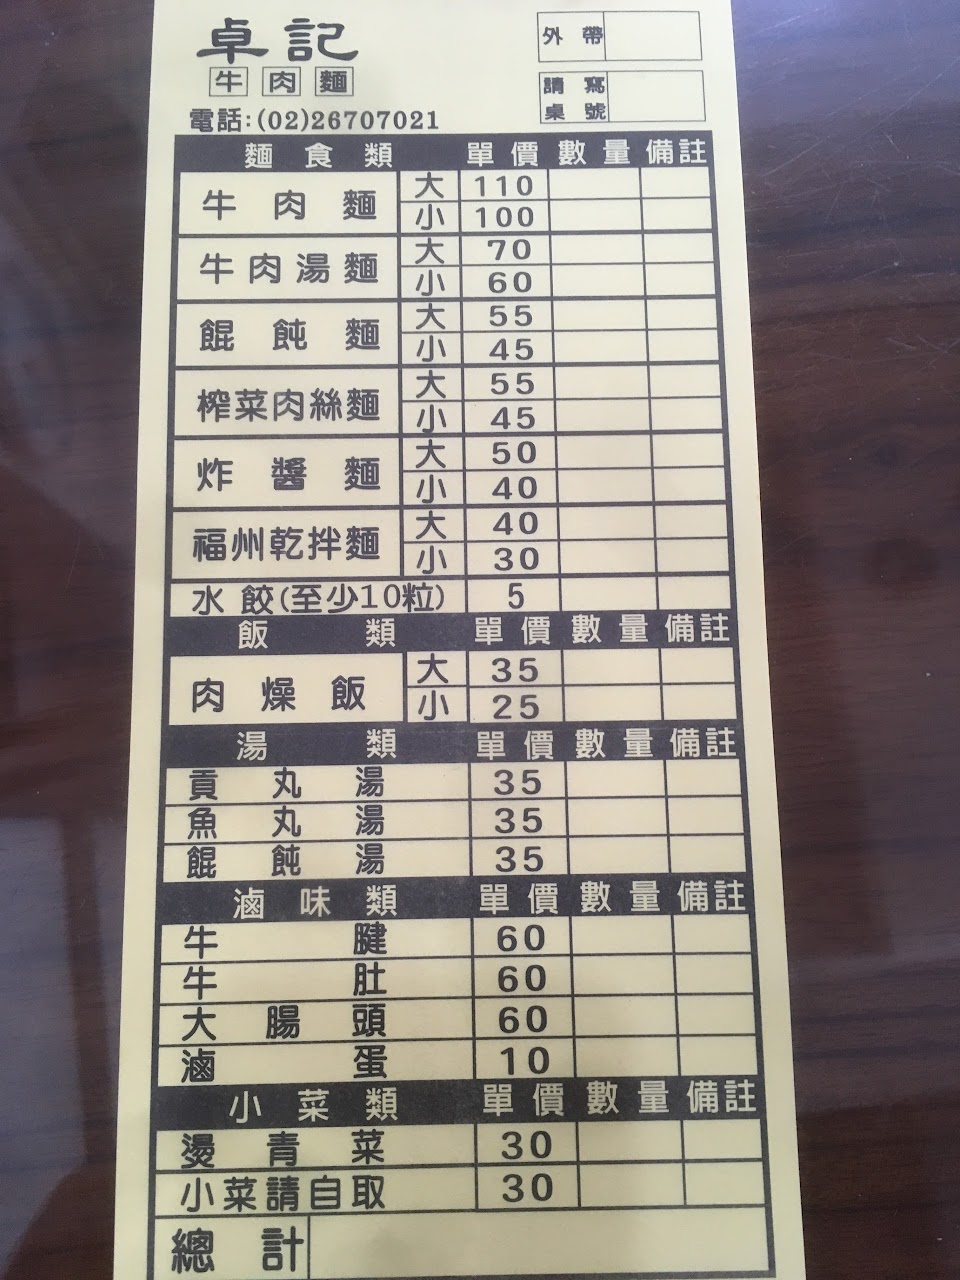 卓記
牛肉麵
外帶
請寫桌號
電話:(02)26707021
麵食類 單價 數量 備註
牛肉麵 大 110
小 100
牛肉湯麵 大 70
小 60
餛飩麵 大 55
小 45
榨菜肉絲麵 大 55
小 45
炸醬麵 大 50
小 40
福州乾拌麵 大 40
小 30
水餃(至少10粒) 5
飯類 單價 數量 備註
肉燥飯 大 35
小 25
湯類 單價 數量 備註
貢丸湯 35
魚丸湯 35
餛飩湯 35
滷味類 單價 數量 備註
牛腱 60
牛肚 60
大腸頭 60
滷蛋 10
小菜類 單價 數量 備註
燙青菜 30
小菜請自取 30
總計